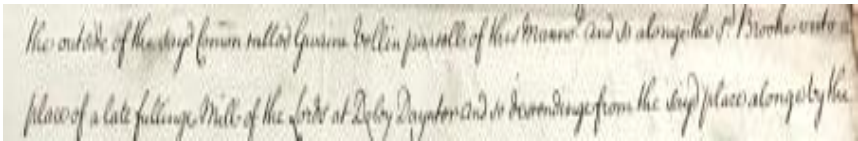 the outside of the sayd Comon called Gwaine Vellin parcell of this Manno:r and so alonge the s:d Brooke unto a
place of a late fullinge Mill of the Lords at Doley Daynton and so descendinge from the sayd place alonge by the